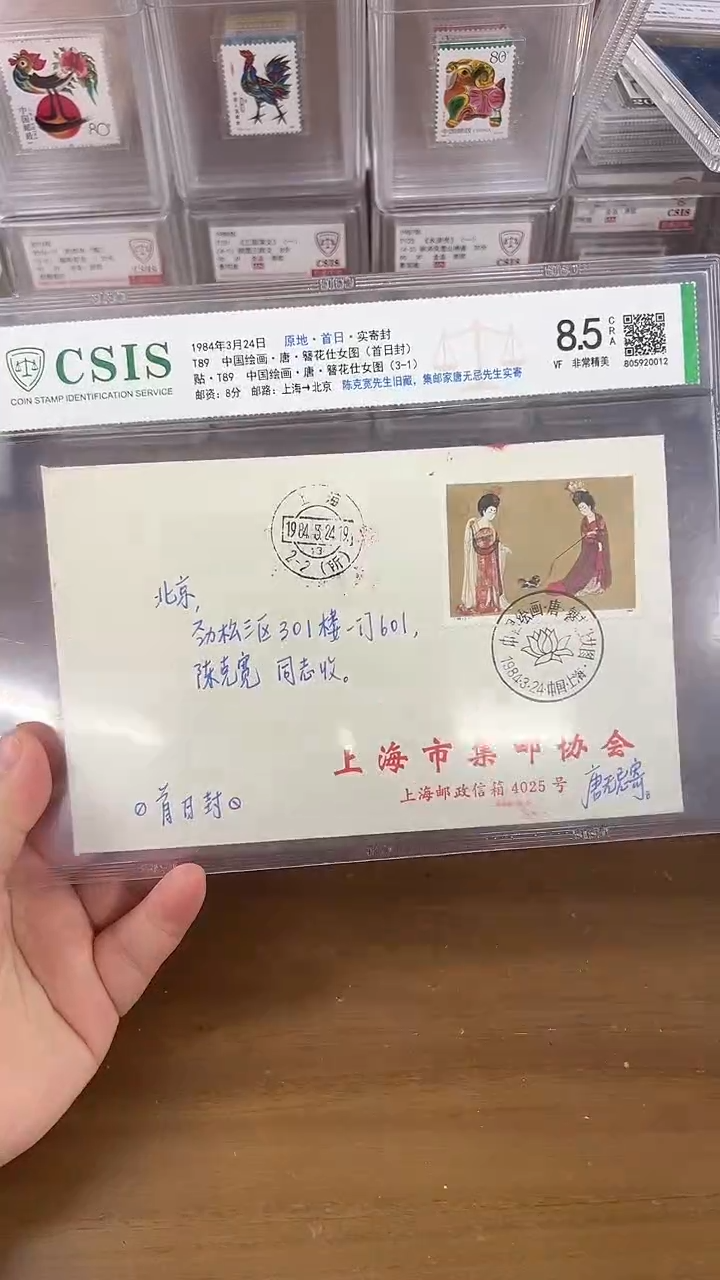 80
中国邮政
80
中国邮政
CSIS
CSIS
CSIS
CSIS
COIN STAMP IDENTIFICATION SERVICE
1984年3月24日 原地·首日·实寄封
T89 中国绘画·唐·簪花仕女图（首日封）
贴·T89 中国绘画·唐·簪花仕女图（3-1）
邮资：8分 邮路：上海→北京 陈克宽先生旧藏，集邮家唐无忌先生实寄
8.5
CRA
VF 非常精美
805920012
上海
1984.3.24.19
13
2-2(所)
北京，
劲松三区301楼一门601，
陈克宽 同志收。
中国绘画·唐·簪花仕女图
1984·3·24·中国·上海·
上海市集邮协会
上海邮政信箱4025号
唐无忌寄
首日封